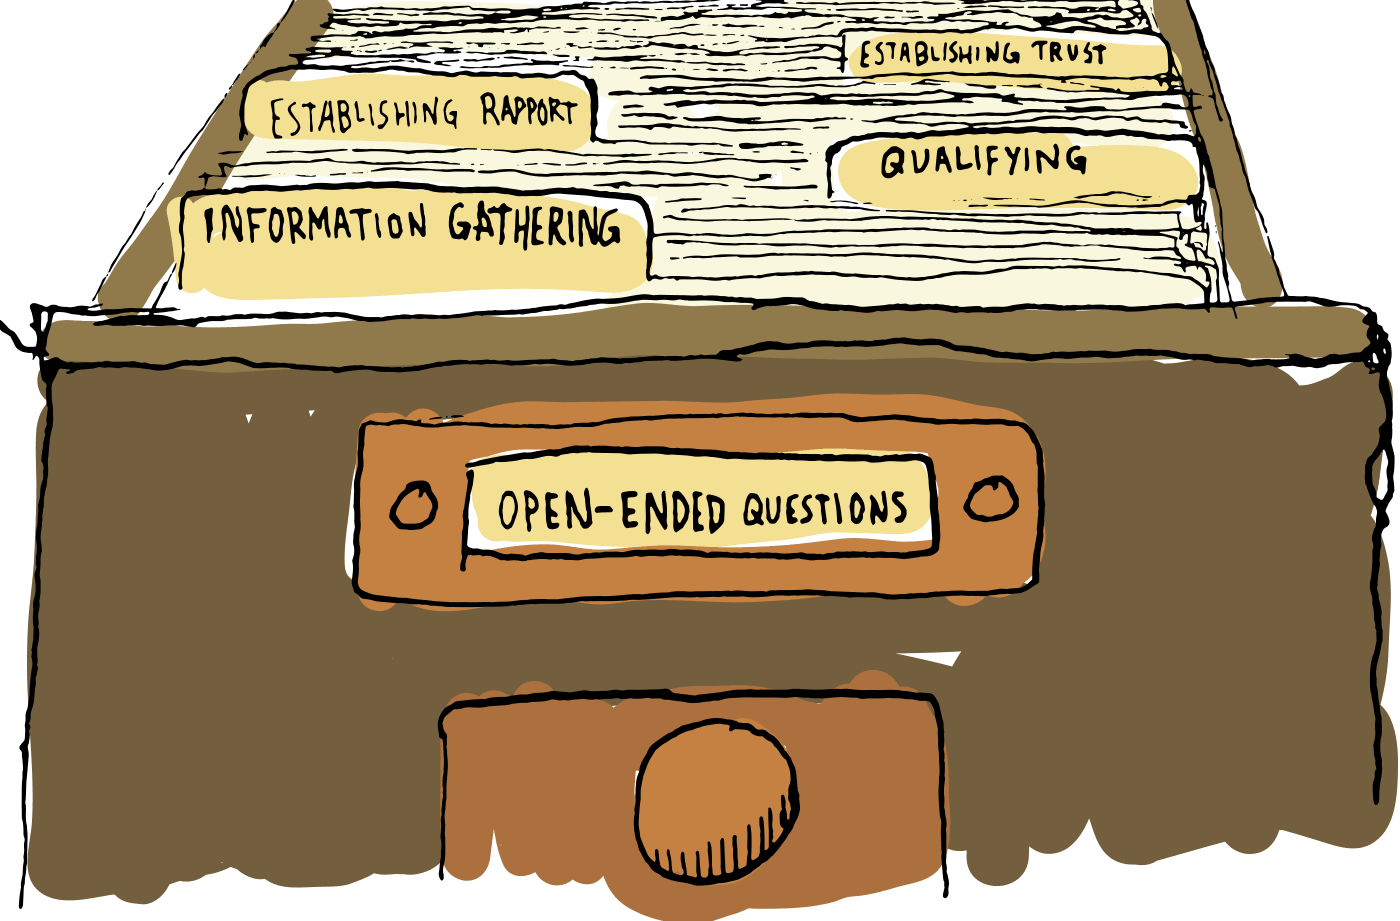 ESTABLISHING TRUST
ESTABLISHING RAPPORT
QUALIFYING
INFORMATION GATHERING
OPEN-ENDED QUESTIONS